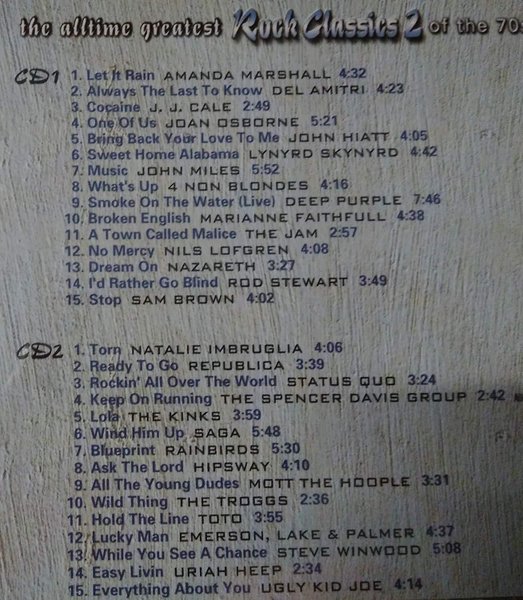 the alltime greatest Rock Classics 2 of the 70s
CD1
1. Let It Rain AMANDA MARSHALL 4:32
2. Always The Last To Know DEL AMITRI 4:23
3. Cocaine J. J. CALE 2:49
4. One Of Us JOAN OSBORNE 5:21
5. Bring Back Your Love To Me JOHN HIATT 4:05
6. Sweet Home Alabama LYNYRD SKYNYRD 4:42
7. Music JOHN MILES 5:52
8. What's Up 4 NON BLONDES 4:16
9. Smoke On The Water (Live) DEEP PURPLE 7:46
10. Broken English MARIANNE FAITHFULL 4:38
11. A Town Called Malice THE JAM 2:57
12. No Mercy NILS LOFGREN 4:08
13. Dream On NAZARETH 3:27
14. I'd Rather Go Blind ROD STEWART 3:49
15. Stop SAM BROWN 4:02
CD2
1. Torn NATALIE IMBRUGLIA 4:06
2. Ready To Go REPUBLICA 3:39
3. Rockin' All Over The World STATUS QUO 3:24
4. Keep On Running THE SPENCER DAVIS GROUP 2:42
5. Lola THE KINKS 3:59
6. Wind Him Up SAGA 5:48
7. Blueprint RAINBIRDS 5:30
8. Ask The Lord HIPSWAY 4:10
9. All The Young Dudes MOTT THE HOOPLE 3:31
10. Wild Thing THE TROGGS 2:36
11. Hold The Line TOTO 3:55
12. Lucky Man EMERSON, LAKE & PALMER 4:37
13. While You See A Chance STEVE WINWOOD 5:08
14. Easy Livin URIAH HEEP 2:34
15. Everything About You UGLY KID JOE 4:14